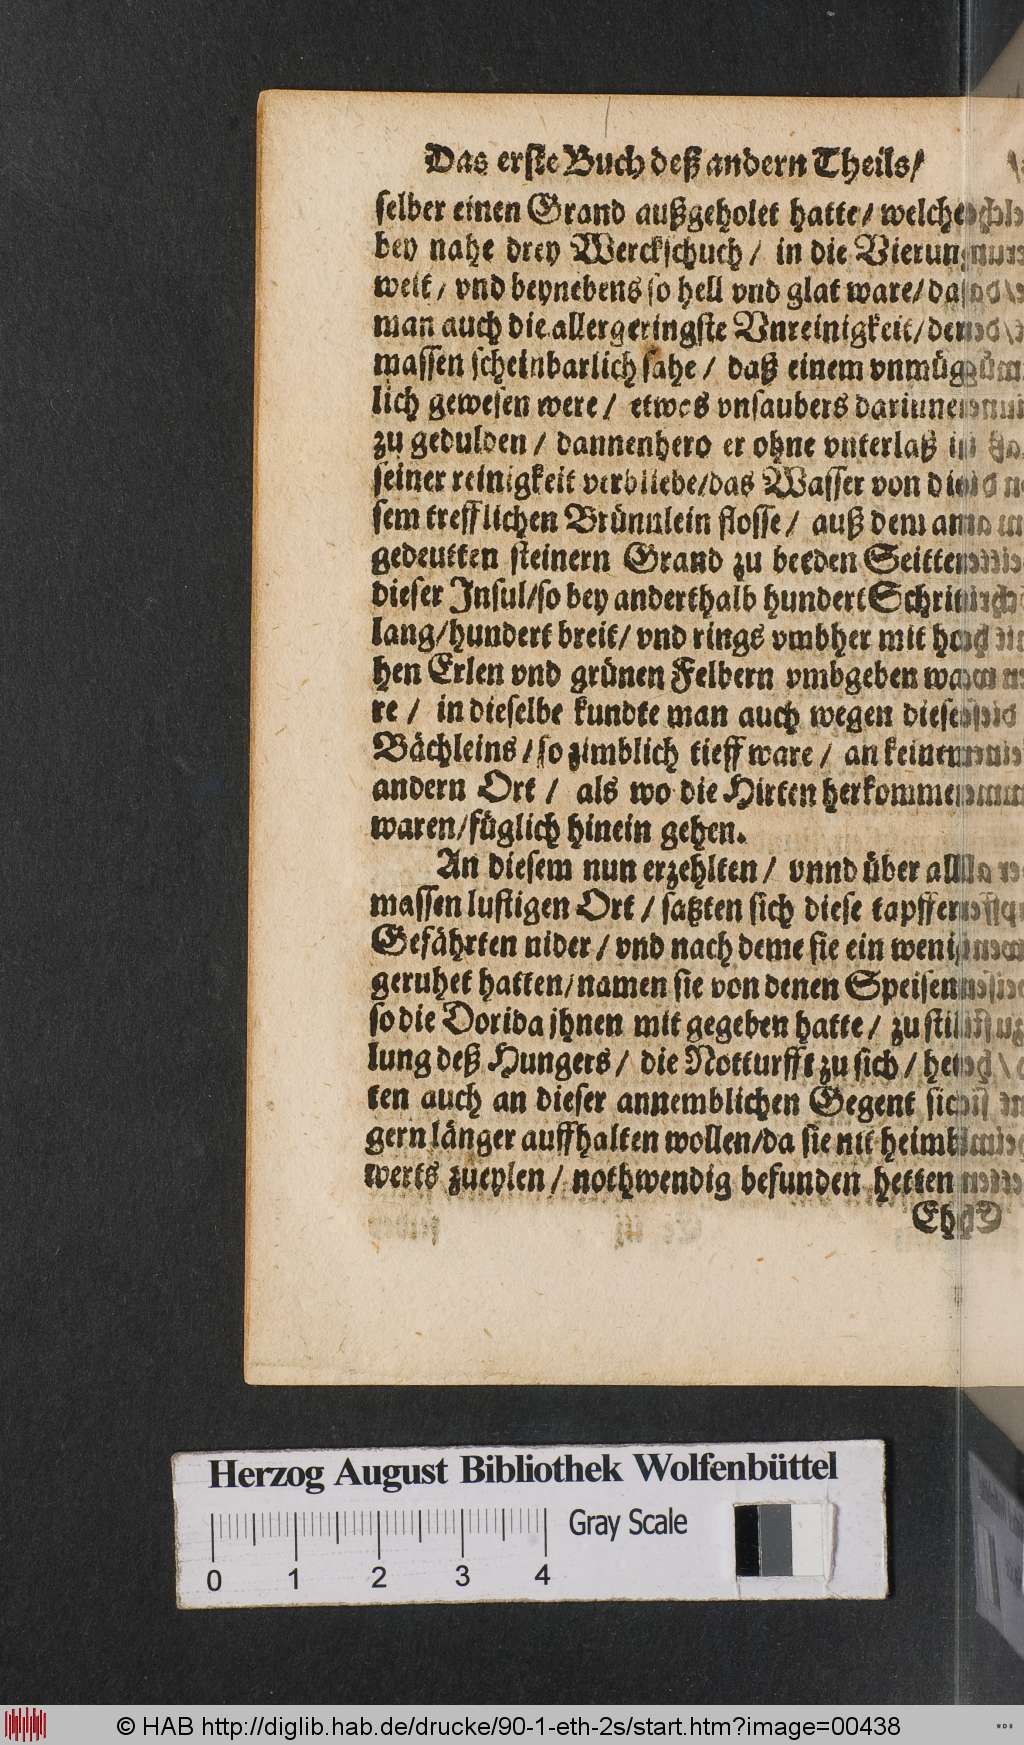 Das erste Buch deß andern Theils/
selber einen Grand außgeholet hatte/ welcher
bey nahe drey Werckschuch/ in die Vierung
weit/ vnd beynebens so hell vnd glat ware/ daß
man auch die allergeringste Vnreinigkeit/ der
massen scheinbarlich sahe/ daß einem vnmüg-
lich gewesen were/ etwas vnsaubers darinnen
zu gedulden/ dannenhero er ohne vnterlaß in
seiner reinigkeit verbliebe/ das Wasser von die-
sem trefflichen Brünnlein flosse/ auß dem an-
gedeutten steinern Grand zu beeden Seitten
dieser Insul/ so bey anderthalb hundert Schrit
lang/ hundert breit/ vnd rings vmbher mit ho-
hen Erlen vnd grünen Felbern vmbgeben wa-
re/ in dieselbe kundte man auch wegen dieses
Bächleins/ so zimblich tieff ware/ an keinem
andern Ort/ als wo die Hirten herkommen
waren/ füglich hinein gehen.
An diesem nun erzehlten/ vnnd über all
massen lustigen Ort/ satzten sich diese tapffern
Gefährten nider/ vnd nach deme sie ein wenig
geruhet hatten/ namen sie von denen Speisen
so die Dorida jhnen mit gegeben hatte/ zu stil-
lung deß Hungers/ die Notturfft zu sich/ het-
ten auch an dieser annemblichen Gegent sich
gern länger auffhalten wollen/ da sie nit heimb-
werts zueylen/ nothwendig befunden hetten
Ehe
Herzog August Bibliothek Wolfenbüttel
Gray Scale
0 1 2 3 4
© HAB http://diglib.hab.de/drucke/90-1-eth-2s/start.htm?image=00438